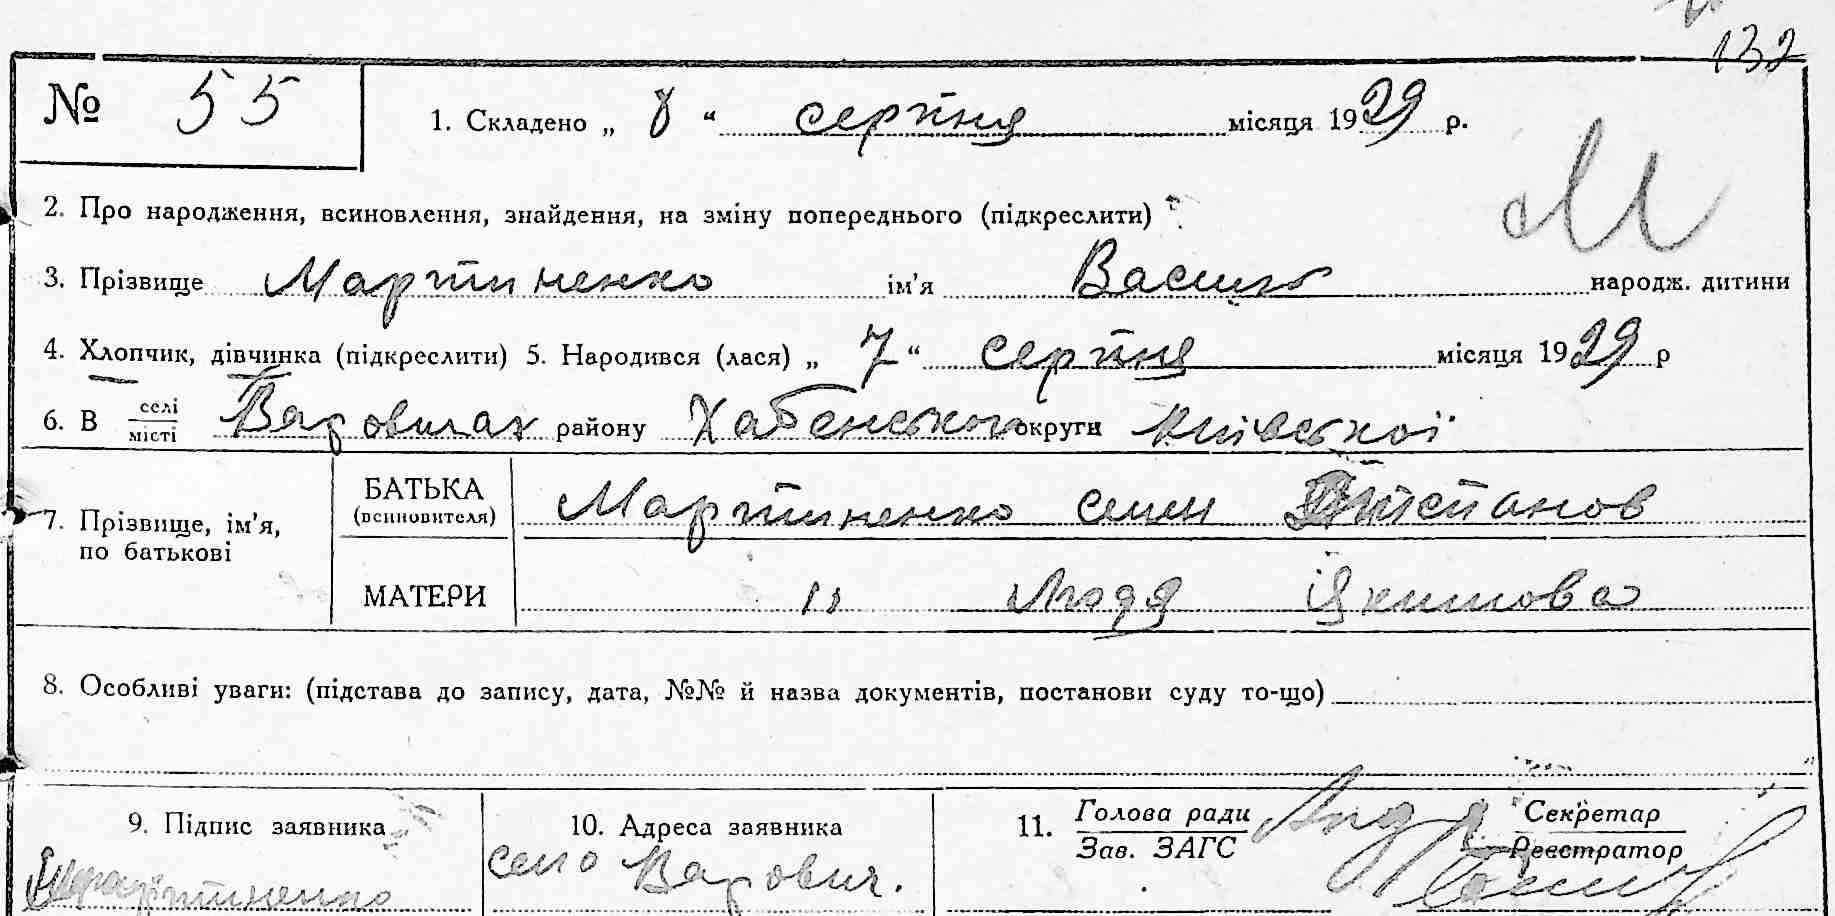 132
№ 55
1. Складено „ 8 “ серпня місяця 1929 р.
2. Про народження, всиновлення, знайдення, на зміну попереднього (підкреслити)
М
3. Прізвище Мартиненко ім’я Василь народж. дитини
4. Хлопчик, дівчинка (підкреслити) 5. Народився (лася) „ 7 “ серпня місяця 1929 р
6. В селі місті Варовичах району Хабенського округи Київської
7. Прізвище, ім’я, по батькові
БАТЬКА (всиновителя) Мартиненко Семен Степанов
МАТЕРИ " Людя Якимова
8. Особливі уваги: (підстава до запису, дата, №№ й назва документів, постанови суду то-що)
9. Підпис заявника
Мартиненко
10. Адреса заявника
село Варович.
11. Голова ради
Зав. ЗАГС
Секретар
Реестратор